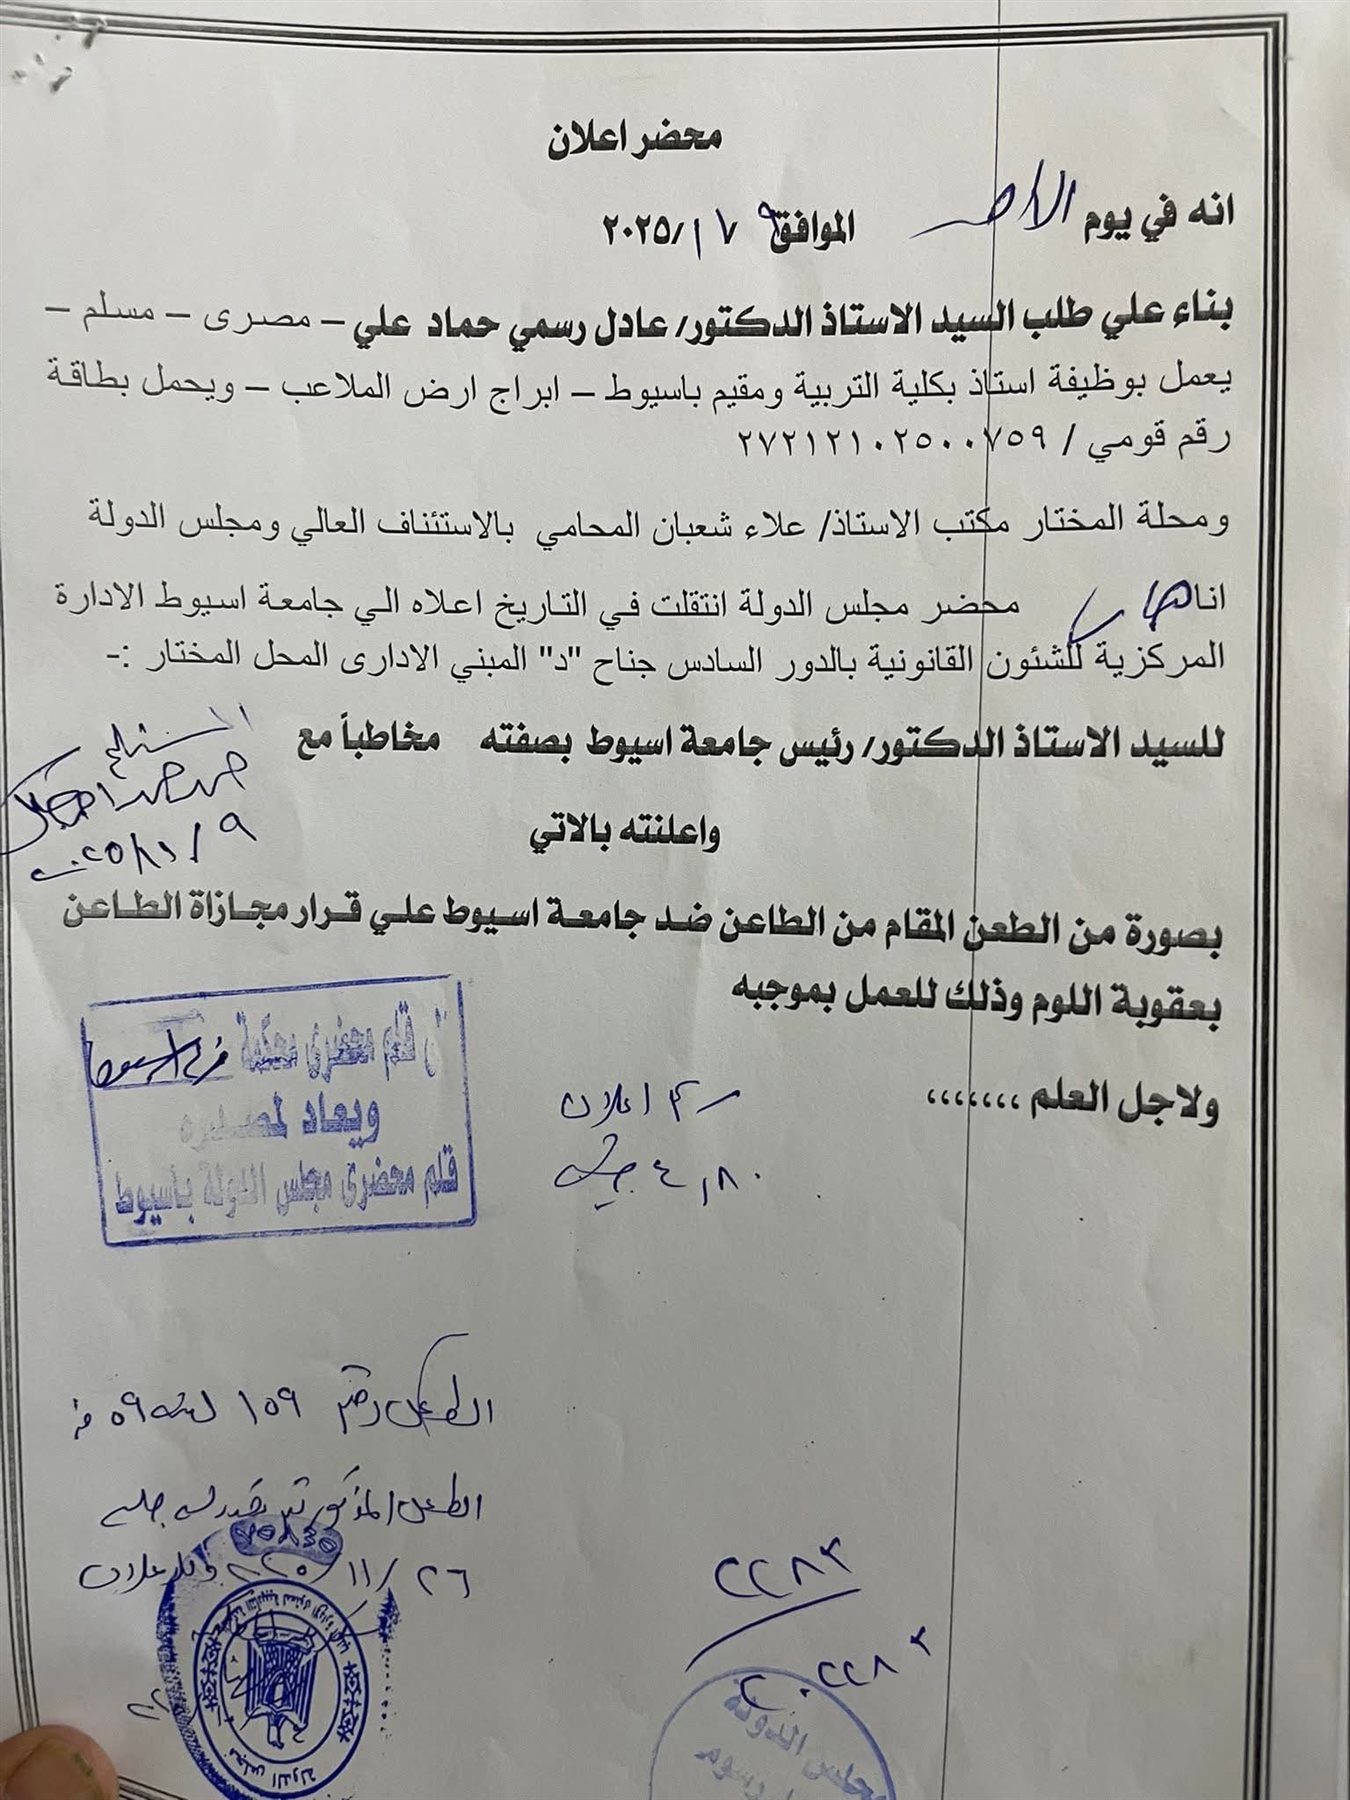 محضر اعلان
انه في يوم الاحد الموافق ٩ / ١١ /٢٠٢٥
بناء علي طلب السيد الاستاذ الدكتور/ عادل رسمي حماد علي – مصرى – مسلم –
يعمل بوظيفة استاذ بكلية التربية ومقيم باسيوط – ابراج ارض الملاعب – ويحمل بطاقة
رقم قومي / ٢٧٢١٢١٠٢٥٠٠٧٥٩
ومحلة المختار مكتب الاستاذ/ علاء شعبان المحامي بالاستئناف العالي ومجلس الدولة
انا محضر مجلس الدولة انتقلت في التاريخ اعلاه الي جامعة اسيوط الادارة
المركزية للشئون القانونية بالدور السادس جناح "د" المبني الادارى المحل المختار :-
للسيد الاستاذ الدكتور/ رئيس جامعة اسيوط بصفته مخاطباً مع
المستلم
٢٠٢٥/١١/٩
واعلنته بالاتي
بصورة من الطعن المقام من الطاعن ضد جامعة اسيوط علي قرار مجازاة الطاعن
بعقوبة اللوم وذلك للعمل بموجبه
ولاجل العلم ،،،،،،،
قلم محضرى محكمة
ويعاد لمصدره
قلم محضرى مجلس الدولة بأسيوط
رسم اعلان
٤,٨٠ جنيه
الطعن رقم ١٥٩ لسنة ٥٩ ق
الطعن المذكور تم تحديد له جلسة
٢٦ / ١١ / ٢٠٢٥ وللاعلان
٢٢٨٣
٢٠٢٢٨٣
مجلس الدولة
مجلس الدولة
رسوم